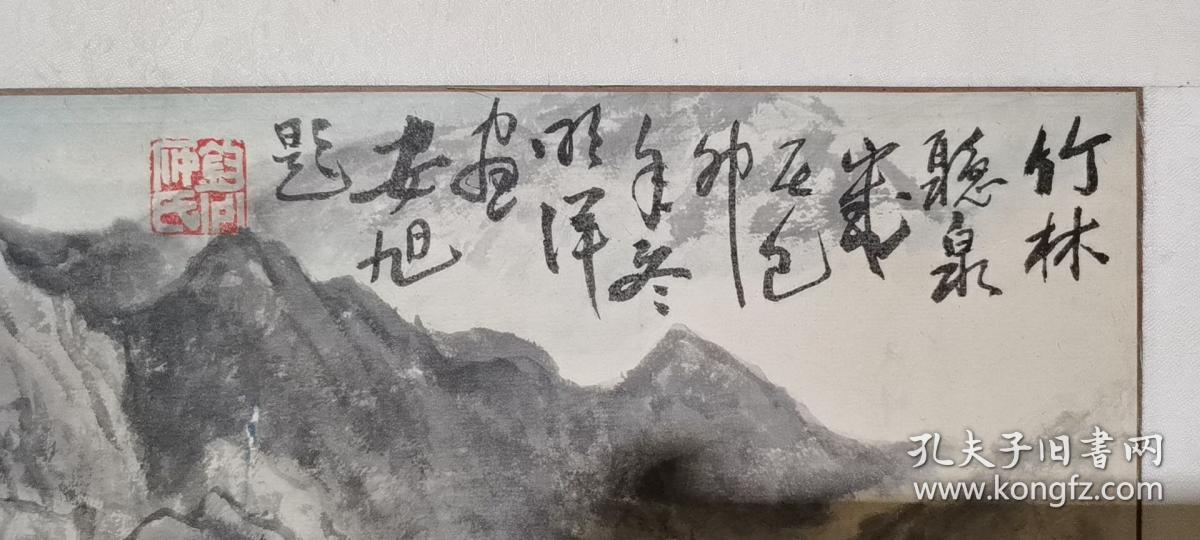 竹林
聴泉
歲
在己
卯
年冬
明洋
畫
安旭
題
孔夫子旧書网
www.kongfz.com